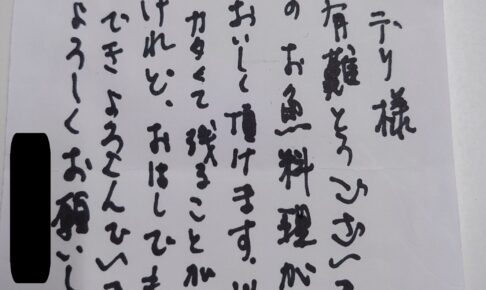 デリ様
有難とうございま
のお魚料理が
おいしく頂けます。
カタくて残ることが
けれど、おはしでも
できよろこんでい
よろしくお願いし